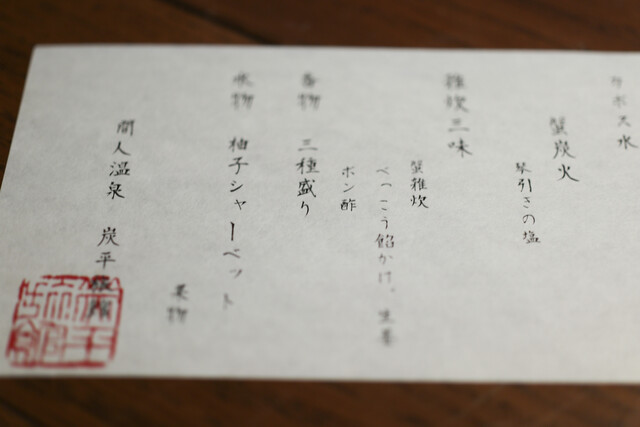 カボス水
蟹炭火
琴引きの塩
雑炊三味
蟹雑炊
べっこう餡かけ。生姜
ポン酢
香物 三種盛り
水物 柚子シャーベット
果物
間人温泉 炭平